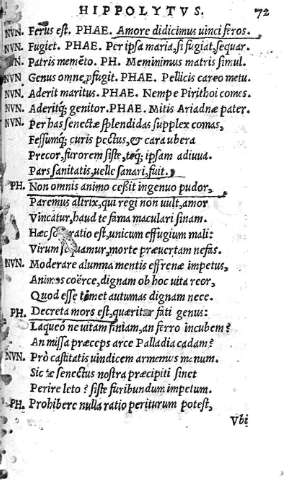 HIPPOLYTVS. 72
NVN. Ferus est. PHAE. Amore didicimus vinci feros.
NVN. Fugiet. PHAE. Per ipsa maria, si fugiat, sequar.
NVN. Patris memēto. PH. Meminimus matris simul.
NVN Genus omne, pfugit. PHAE. Pellicis careo metu.
NVN. Aderit maritus. PHAE. Nempe Pirithoi comes.
NVN. Aderitq; genitor. PHAE. Mitis Ariadnæ pater.
NVN. Per has senectæ splendidas supplex comas,
Fessumq; curis pectus, & cara vbera
Precor, furorem siste, teq; ipsam adiuua.
Pars sanitatis, velle sanari, fuit.
PH. Non omnis animo cessit ingenuo pudor,
Paremus altrix, qui regi non vult, amor
Vincatur, haud te fama maculari sinam.
Hæc sola ratio est, vnicum effugium mali:
Virum sequamur, morte præuertam nefas.
NVN. Moderare alumna mentis effrenæ impetus,
Animos coërce, dignam ob hoc vita reor,
Quod esse temet autumas dignam nece.
PH. Decreta mors est, quæritur fati genus:
Laqueo ne vitam finiam, an ferro incubem?
An missa præceps arce Palladia cadam?
NVN. Prò castitatis vindicem armemus manum.
Sic te senectus nostra præcipiti sinet
Perire leto? siste furibundum impetum.
PH. Prohibere nulla ratio periturum potest,
Vbi